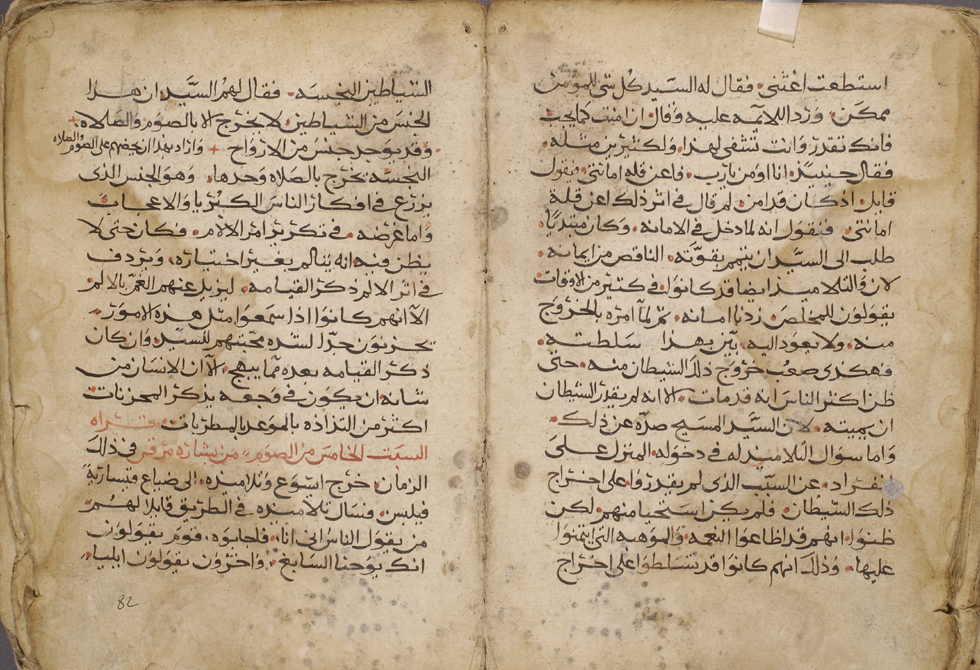 استطعت اغثنى. فقال له السيد كل شى للمومن
ممكن. ورد اللائمه عليه وقال ان امنت كما يجب
فانك تقدر وانت تشفى لهذا. ولكثيرين مثله.
فقال حينيذ. انا اومن يارب. فاعن قله امانتى. ونقول
قايل. اذ كان قد امن. لم قال فى اثر ذلك اعن قلة
امانتى. فنقول انه لما دخل فى الامانه. وكان مبتديًا.
طلب الى السيد ان يتمم بقوته. الناقص من ايمانه.
لان والتلاميذ ايضا قد كانوا. فى كثير من الاوقات
يقولون للمخلص. زدنا امانه. ثم لما امره بالخروج
منه. ولا يعود اليه. بين بهذا سلطته.
فهكذى صعب خروج ذلك الشيطان منه. حتى
ظن اكثر الناس انه قد مات. الا انه لم يقدر الشيطان
ان يميته. لان السيد المسيح صده عن ذلك.
واما سوال التلاميذ له فى دخوله. المنزل على
انفراد. عن السبب الذى لم يقدروا على اخراج
ذلك الشيطان. فلم يكن استحيا منهم. لكن
ظنوا. انهم قد اضاعوا النعمه. والموهبه التى ايتمنوا
عليها. وذلك انهم كانوا قد تسلطوا على اخراج
الشياطين النجسه. فقال لهم السيد. ان هذا
الجنس من الشياطين. لا يخرج الا بالصوم والصلاه.
وقد يوجد جنس من الارواح + واراد بهذا ان يحضهم على الصوم والصلاه
النجسه. يخرج بالصلاه وحدها. وهو الجنس الذى
يزرع فى افكار الناس الكبريا والاعجاب
واما غرضه. فى تكرير امر الالام. فكان حتى لا
يظن فيه انه يتالم بغير اختياره. ويردف
فى اثر الالم ذكر القيامه. ليزيل عنهم الغم بالالم
الا انهم كانوا اذا سمعوا مثل هذه الامور.
يحزنون جدا لشده محبتهم للسيد. وان كان
ذكر القيامه بعده مما يبهج. الا ان الانسان من
شانه ان يكون فى وجعه بذكر المحزنات
اكثر من التذاذه بالموعد بالمطربات. قراه
السبت الخامس من الصوم. من بشاره مرقس فى ذلك
الزمان. خرج اسوع وتلاميذه. الى ضياع قيساريّة
فيلبس. فسال تلاميذه فى الطريق قايلا لهم.
من يقول الناس انى انا. فاجابوه. قوم يقولون
انك يوحنا السابغ. واخرون يقولون ايليا.
82